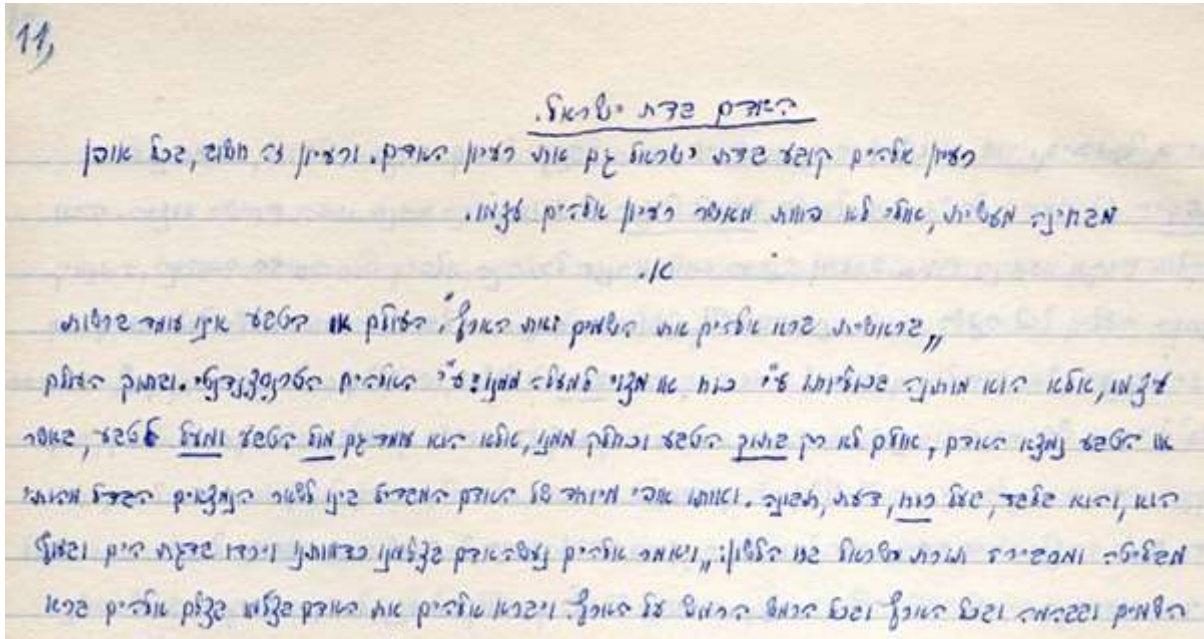 11,
האדם בדת ישראל.
רעיון אלהים קובע בדת ישראל גם את רעיון האדם. ורעיון זה חשוב, בכל אופן
מבחינה מעשית, אולי לא פחות מאשר רעיון אלהים עצמו.
א.
„בראשית ברא אלהים את השמים ואת הארץ". העולם או הטבע אינו עומד ברשות
עצמו, אלא הוא מותנה בכוליותו ע"י כוח או מצוי למעלה ממנו: ע"י האלהים הטרנסצנדנטי. ובתוך העולם
או הטבע נמצא האדם, אולם לא רק בתוך הטבע וכחלק ממנו, אלא הוא עומד גם מול הטבע ומעל לטבע, באשר
הוא, והוא בלבד, בעל רוח, דעת, תבונה. ואותו אופי מיוחד של האדם המבדיל בינו לשאר הנמצאים הבדל מהותי
מבליטה ומסבירה תורת ישראל בזו הלשון: „ויאמר אלהים נעשה אדם בצלמנו כדמותנו וירדו בדגת הים ובעוף
השמים ובבהמה ובכל הארץ ובכל הרמש הרמש על הארץ. ויברא אלהים את האדם בצלמו בצלם אלהים ברא